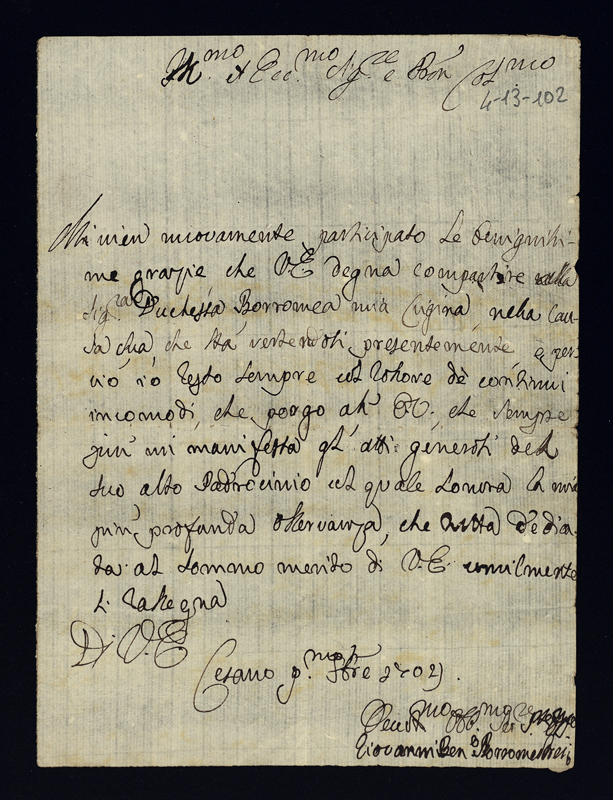 Ill.mo et Ecc.mo Sig.re e Pron Col.mo
4-13-102
Mi vien nuovamente participato le benignissi-
me grazie che V.E. degna compartire alla
Sig.ra Duchessa Borromea mia Cugina nella Cau-
sa sua, che stà vertendosi presentemente, e per
ciò io resto sempre col rossore dè continui
incomodi, che porgo all' E.V. che sempre
più mi manifesta gl' atti generosi del
suo alto Padrocinio col quale honora la mia
più profonda osservanza, che tutta dedica-
ta al sommo merito di V.E. umilmente
si rassegna
Di V.E.
Cesano p.mo 9bre 1702
Devot.mo Obb.mo Ser.re
Giovanni Ben.o Borromeo Aresi